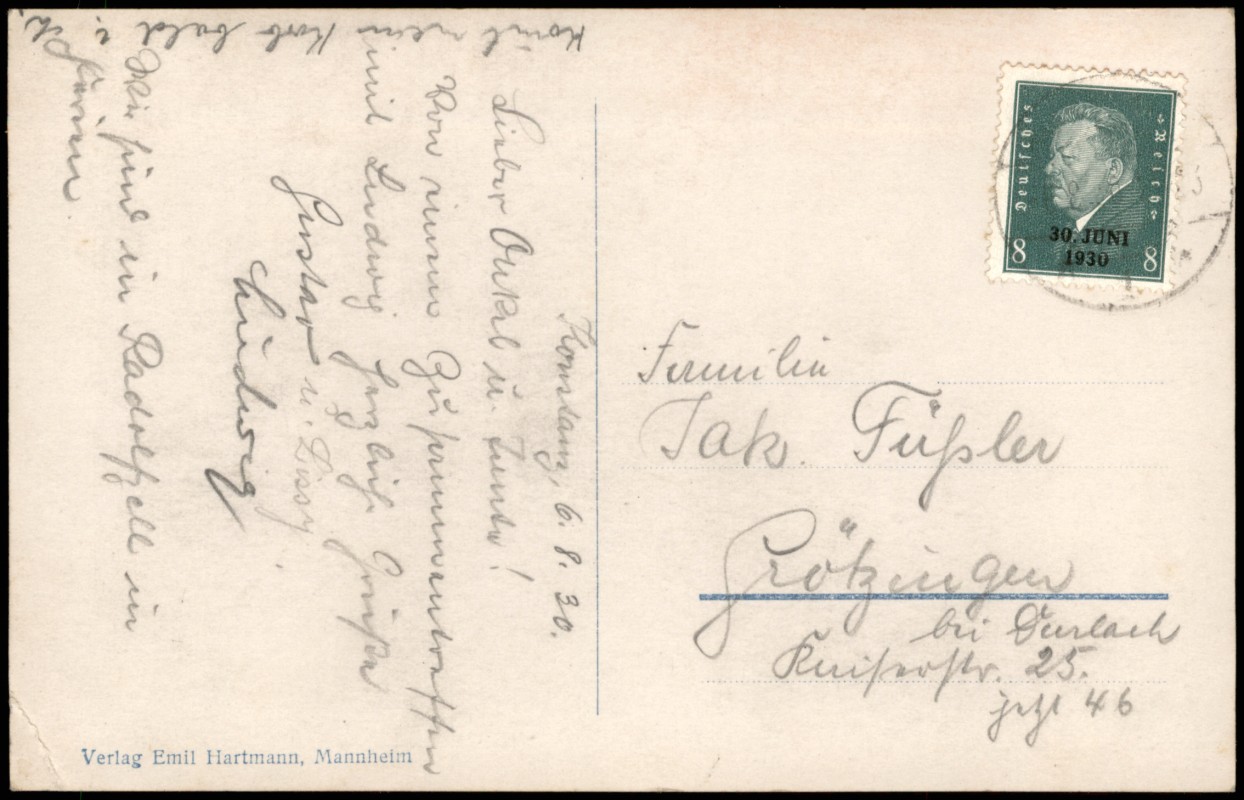 Konstanz, 6. 8. 30.
Lieber Onkel u. Tante!
Von einem Zusammentreffen
mit Ludwig herzliche Grüße
Gustav u. Lissy.
Ludwig
Wir sind in Radolfzell in
Ferien.
bald
Deutsches Reich
30. JUNI
1930
8 8
Familie
Jak. Füßler
Grötzingen
bei Durlach
Kaiserstr. 25.
jetzt 46
Verlag Emil Hartmann, Mannheim